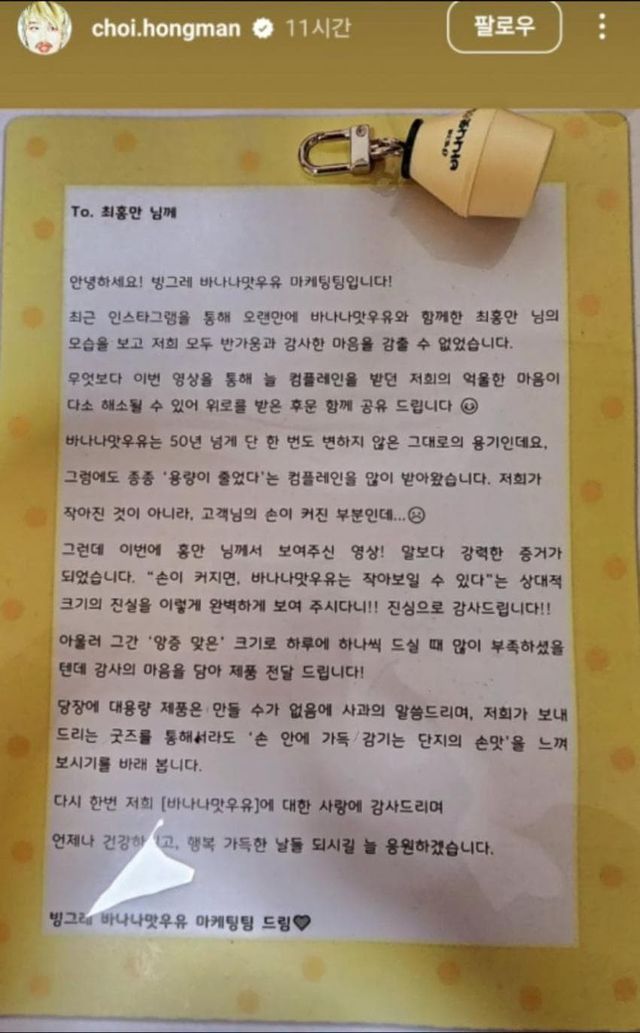 choi.hongman 11시간 팔로우
To. 최홍만 님께
안녕하세요! 빙그레 바나나맛우유 마케팅팀입니다!
최근 인스타그램을 통해 오랜만에 바나나맛우유와 함께한 최홍만 님의
모습을 보고 저희 모두 반가움과 감사한 마음을 감출 수 없었습니다.
무엇보다 이번 영상을 통해 늘 컴플레인을 받던 저희의 억울한 마음이
다소 해소될 수 있어 위로를 받은 후문 함께 공유 드립니다 ☺
바나나맛우유는 50년 넘게 단 한 번도 변하지 않은 그대로의 용기인데요,
그럼에도 종종 ‘용량이 줄었다’는 컴플레인을 많이 받아왔습니다. 저희가
작아진 것이 아니라, 고객님의 손이 커진 부분인데...☹
그런데 이번에 홍만 님께서 보여주신 영상! 말보다 강력한 증거가
되었습니다. “손이 커지면, 바나나맛우유는 작아보일 수 있다”는 상대적
크기의 진실을 이렇게 완벽하게 보여 주시다니!! 진심으로 감사드립니다!!
아울러 그간 ‘앙증 맞은’ 크기로 하루에 하나씩 드실 때 많이 부족하셨을
텐데 감사의 마음을 담아 제품 전달 드립니다!
당장에 대용량 제품은 만들 수가 없음에 사과의 말씀드리며, 저희가 보내
드리는 굿즈를 통해서라도 ‘손 안에 가득 감기는 단지의 손맛’을 느껴
보시기를 바래 봅니다.
다시 한번 저희 [바나나맛우유]에 대한 사랑에 감사드리며
언제나 행복 가득한 날들 되시길 늘 응원하겠습니다.
빙그레 바나나맛우유 마케팅팀 드림♥